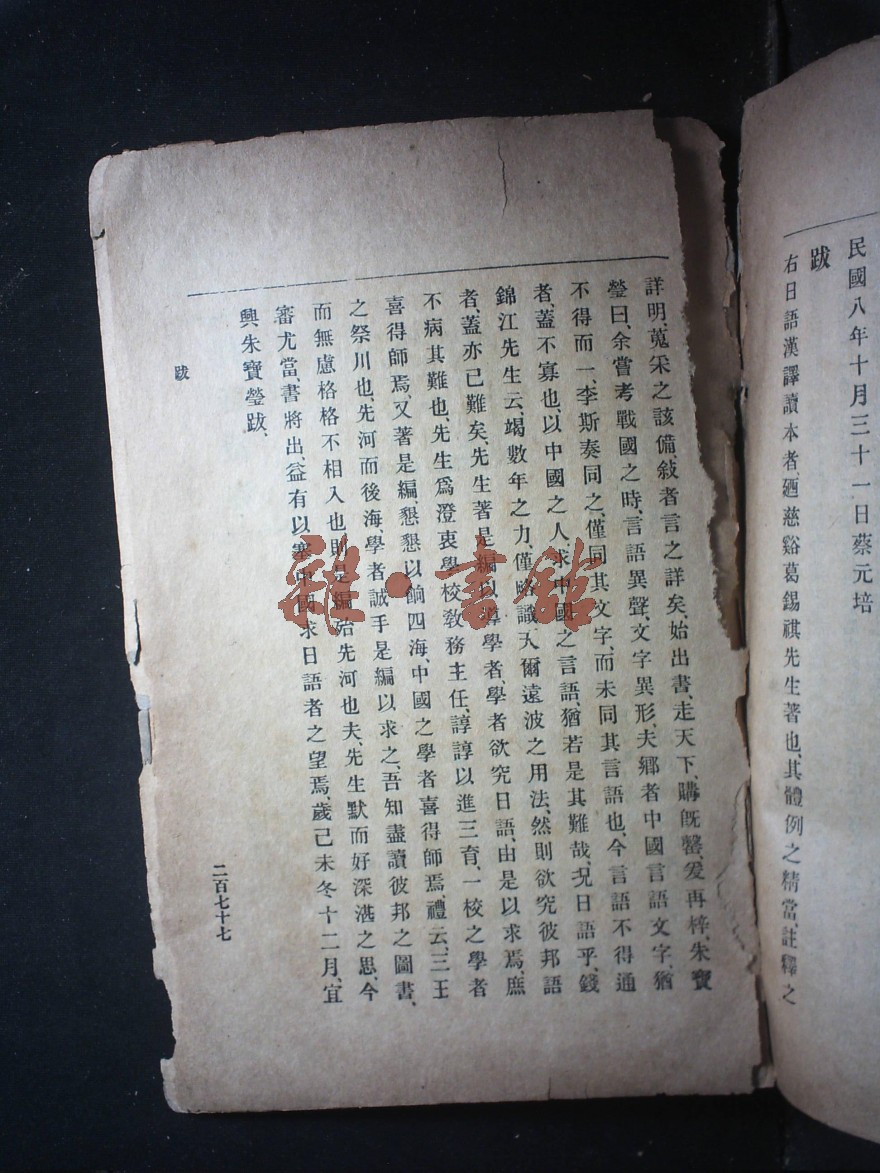 民國八年十月三十一日蔡元培
跋
右日語漢譯讀本者、廼慈谿葛錫祺先生著也、其體例之精當、註釋之
詳明、蒐采之該備、敍者言之詳矣、始出書、走天下、購旣罄、爰再梓、朱寶
瑩曰、余嘗考戰國之時、言語異聲、文字異形、夫鄉者中國言語文字、猶
不得而一、李斯奏同之、僅同其文字、而未同其言語也、今言語不得通
者、蓋不寡也、以中國之人、求中國之言語、猶若是其難哉、況日語乎、錢
錦江先生云、竭數年之力、僅略識天爾遠波之用法、然則欲究彼邦語
者、蓋亦已難矣、先生著是編以導學者、學者欲究日語、由是以求焉、庶
不病其難也、先生爲澄衷學校敎務主任、諄諄以進三育、一校之學者
喜得師焉、又著是編、懇懇以餉四海、中國之學者喜得師焉、禮云、三王
之祭川也、先河而後海、學者誠手是編以求之、吾知盡讀彼邦之圖書、
而無慮格格不相入也、則是編殆先河也夫、先生默而好深湛之思、今
審尤當、書將出、益有以塞中國求日語者之望焉、歲己未冬十二月、宜
興朱寶瑩跋、
跋
二百七十七
雜·書館